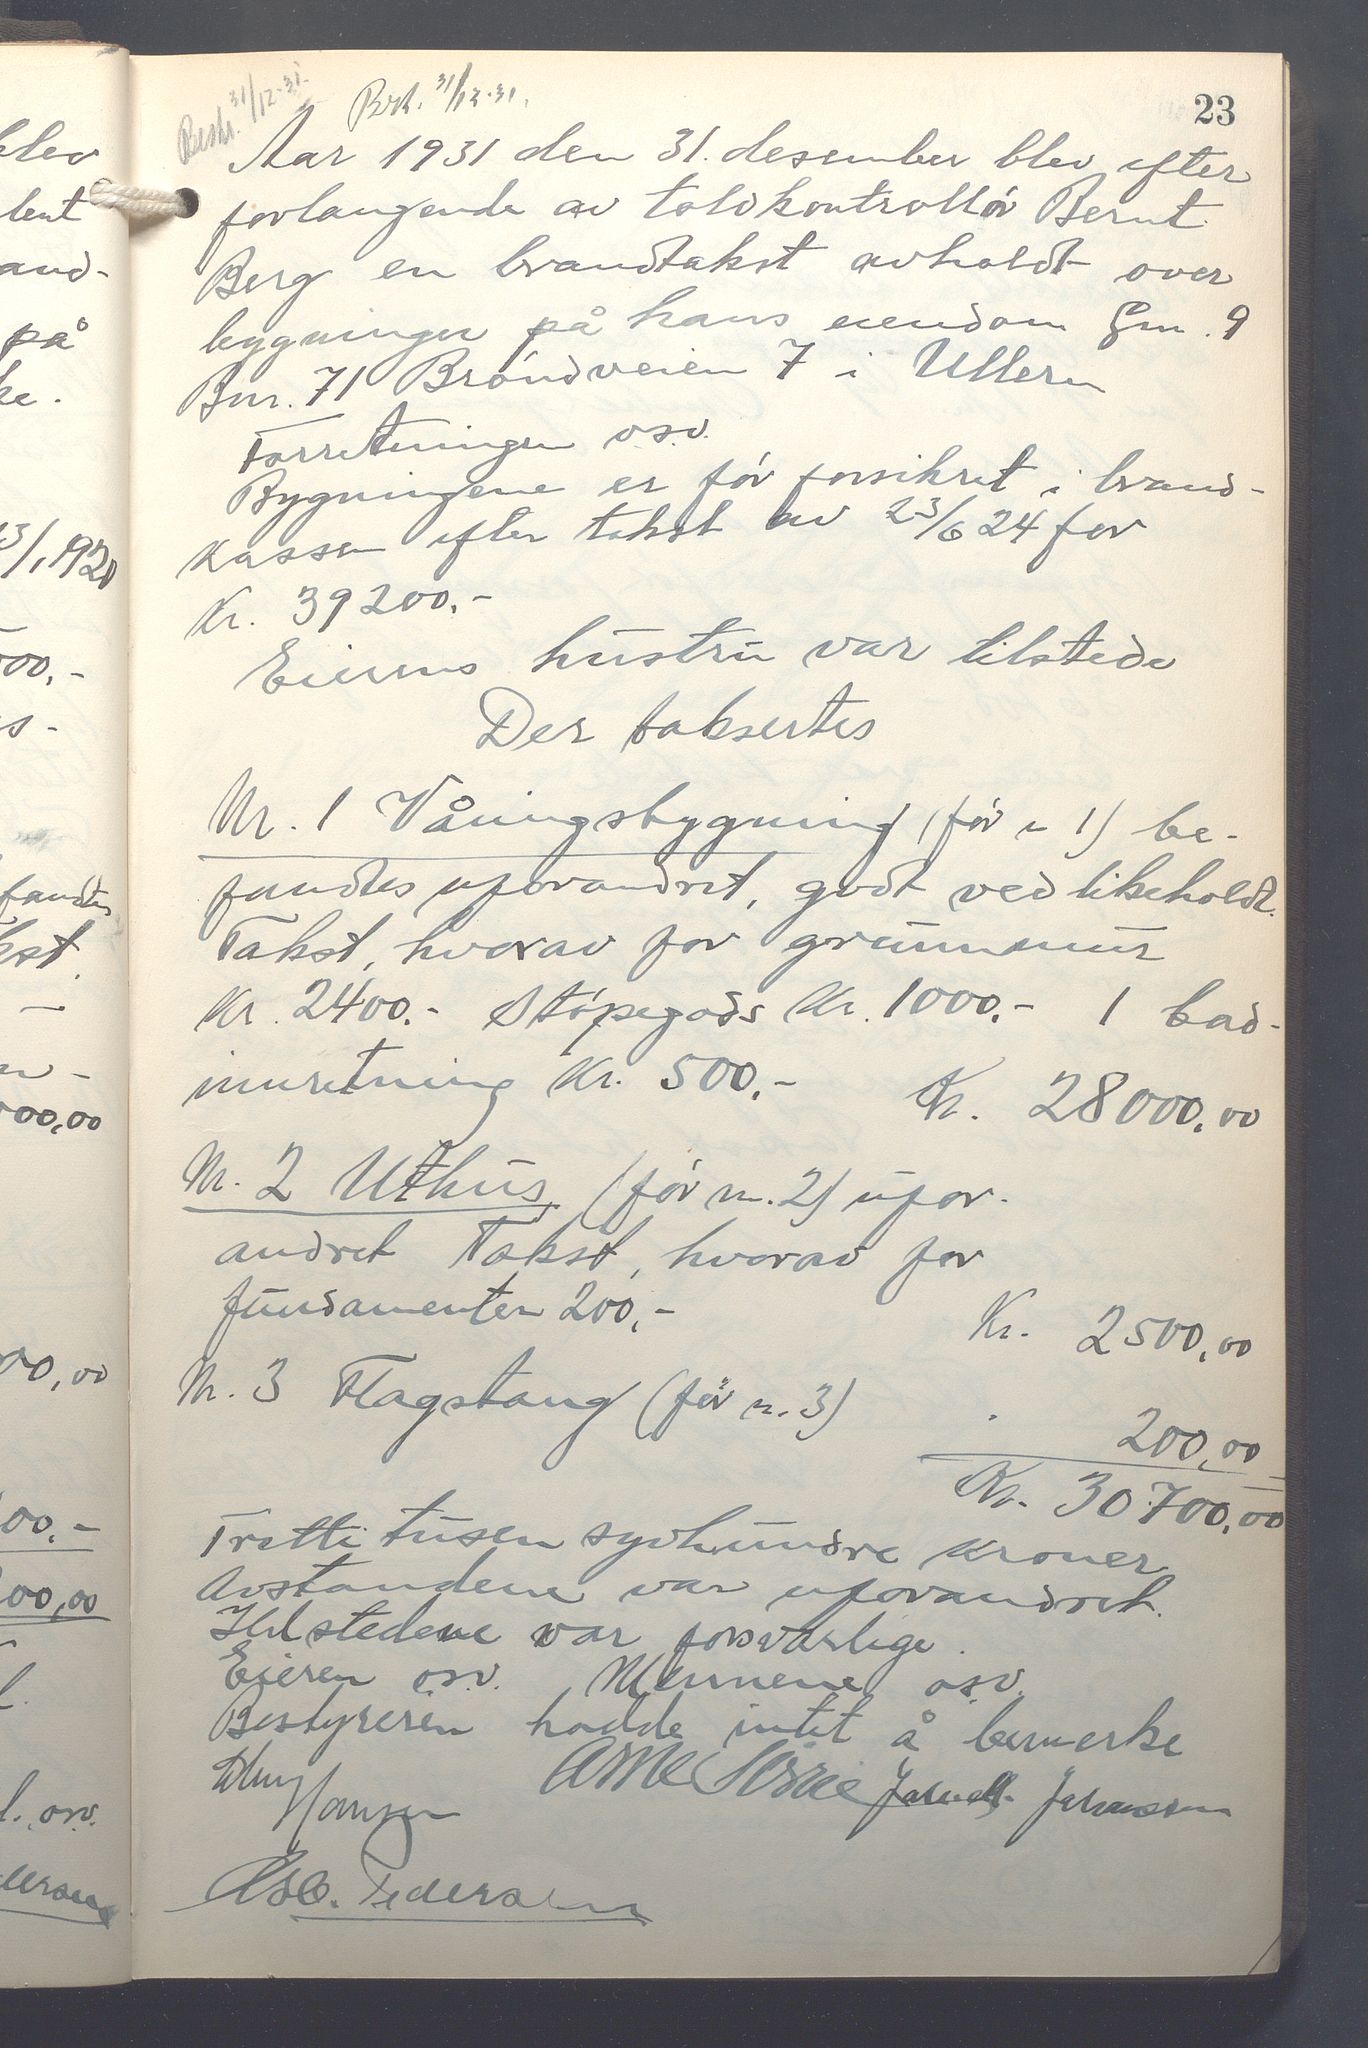 23
Beskr. 31/12-31.
Besk. 31/12-31.
Aar 1931 den 31. desember blev efter
forlangende av toldkontrollör Bernt
Berg en brandtakst avholdt over
bygninger på hans eiendom Gnr. 9
Bnr. 71 Bröndveien 7 i Ullern
Forretningen osv.
Bygningene er för forsikret i brand-
kassen efter takst av 23/6 24 for
Kr. 39200.-
Eierens hustru var tilstede
Der taksertes
Nr. 1 Våningsbygning (för n 1) be-
fandtes uforandret, godt vedlikeholdt.
Takst, hvorav for grunnmur
Kr. 2400.- Stöpegods Kr. 1000.- 1 bad-
innretning Kr. 500.- Kr. 28000,00
Nr. 2 Uthus (för nr. 2) ufor-
andret Takst, hvorav for
fundamenter 200,- Kr. 2500,00
Nr. 3 Flagstang (för n. 3) 200,00
Kr. 30700,00
Tretti tusen syvhundre kroner
Avstandene var uforandret.
Ildstedene var forsvarlige.
Eieren osv. Mennene osv.
Bestyreren hadde intet å bemerke
Hansen Arne Johansen
Pedersen
blev
lent
and-
på
ke.
13/1 1920
000,-
s-
fandtes
kst.
n-
000,00
00,00
00.-
00,00
l. osv.
dersen